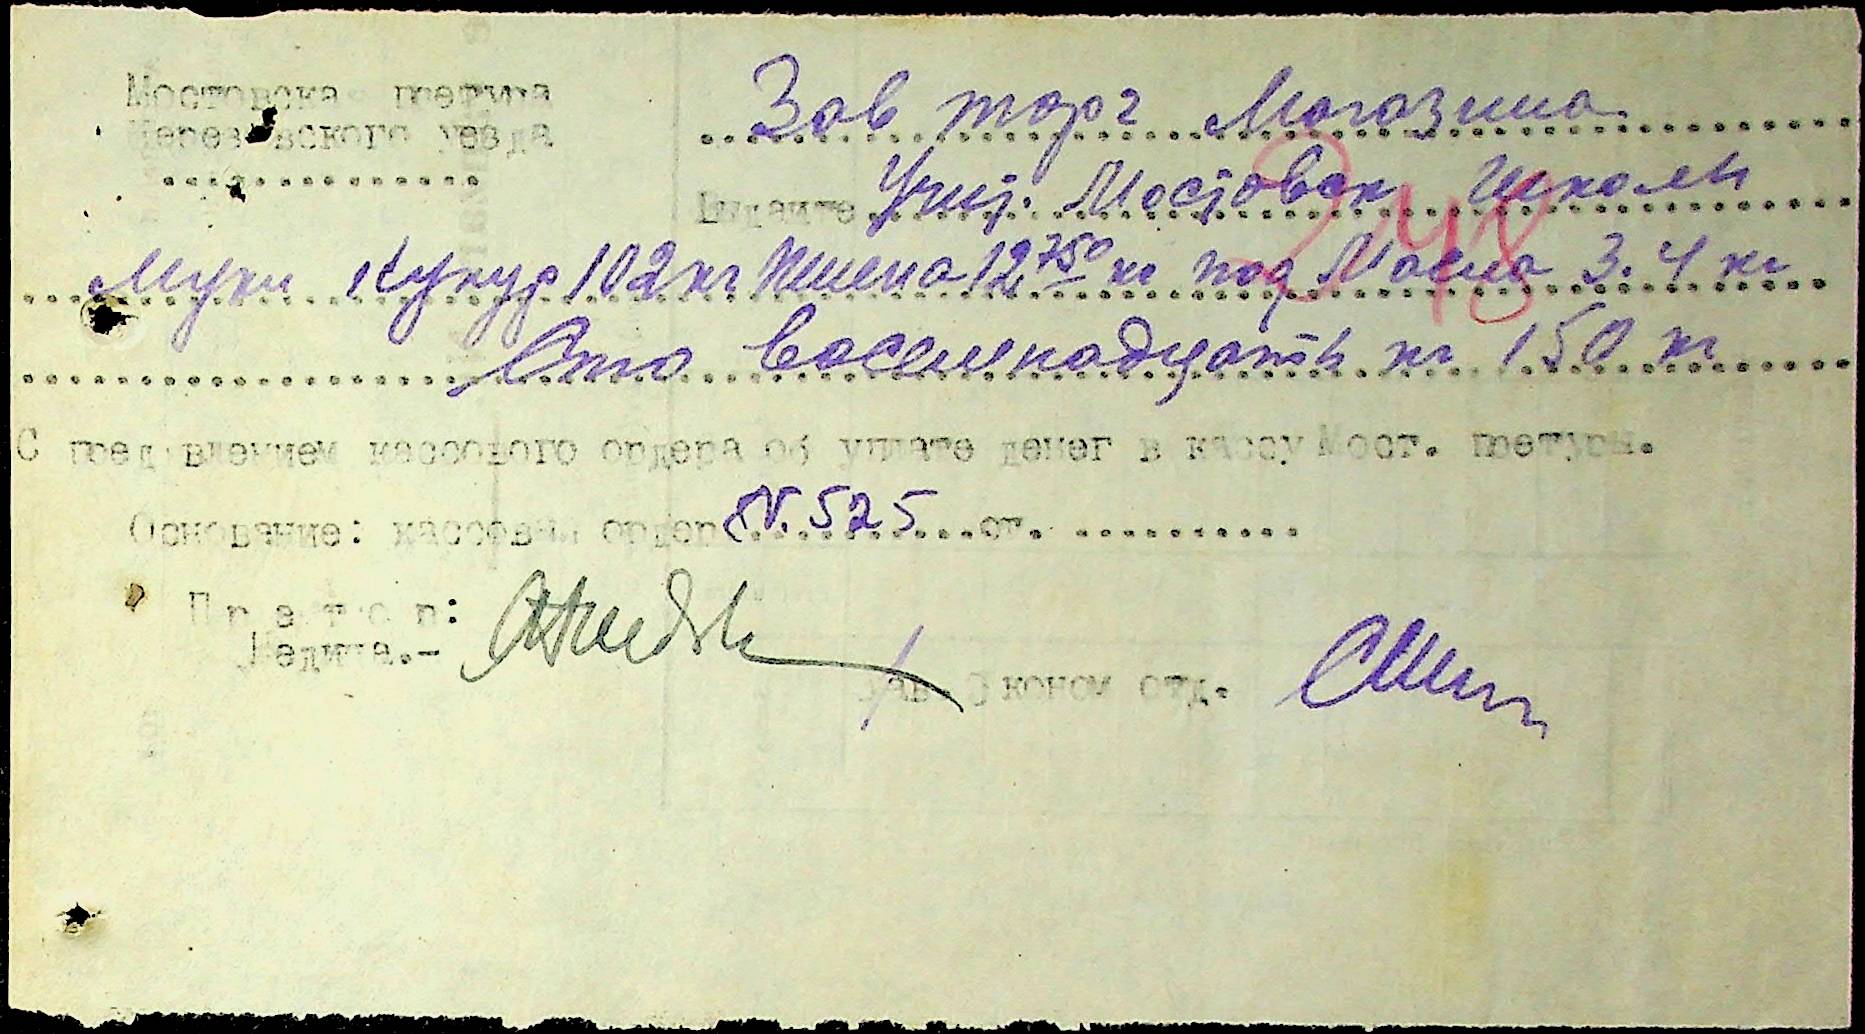 Мостовска претура
Березовского уезда
Зав торг Магазина
Выдайте Учит. Мостовск Школы
248
Муки Кукур 102 кг Пшена 12,750 кг под Масла 3.4 кг
Сто восемнадцать кг 150 кг
С пред'явлением кассового ордера об уплате денег в кассу Мост. претуры.
Основание: кассовый ордер N. 525 от.
Претор:
Зав. Эконом отд.